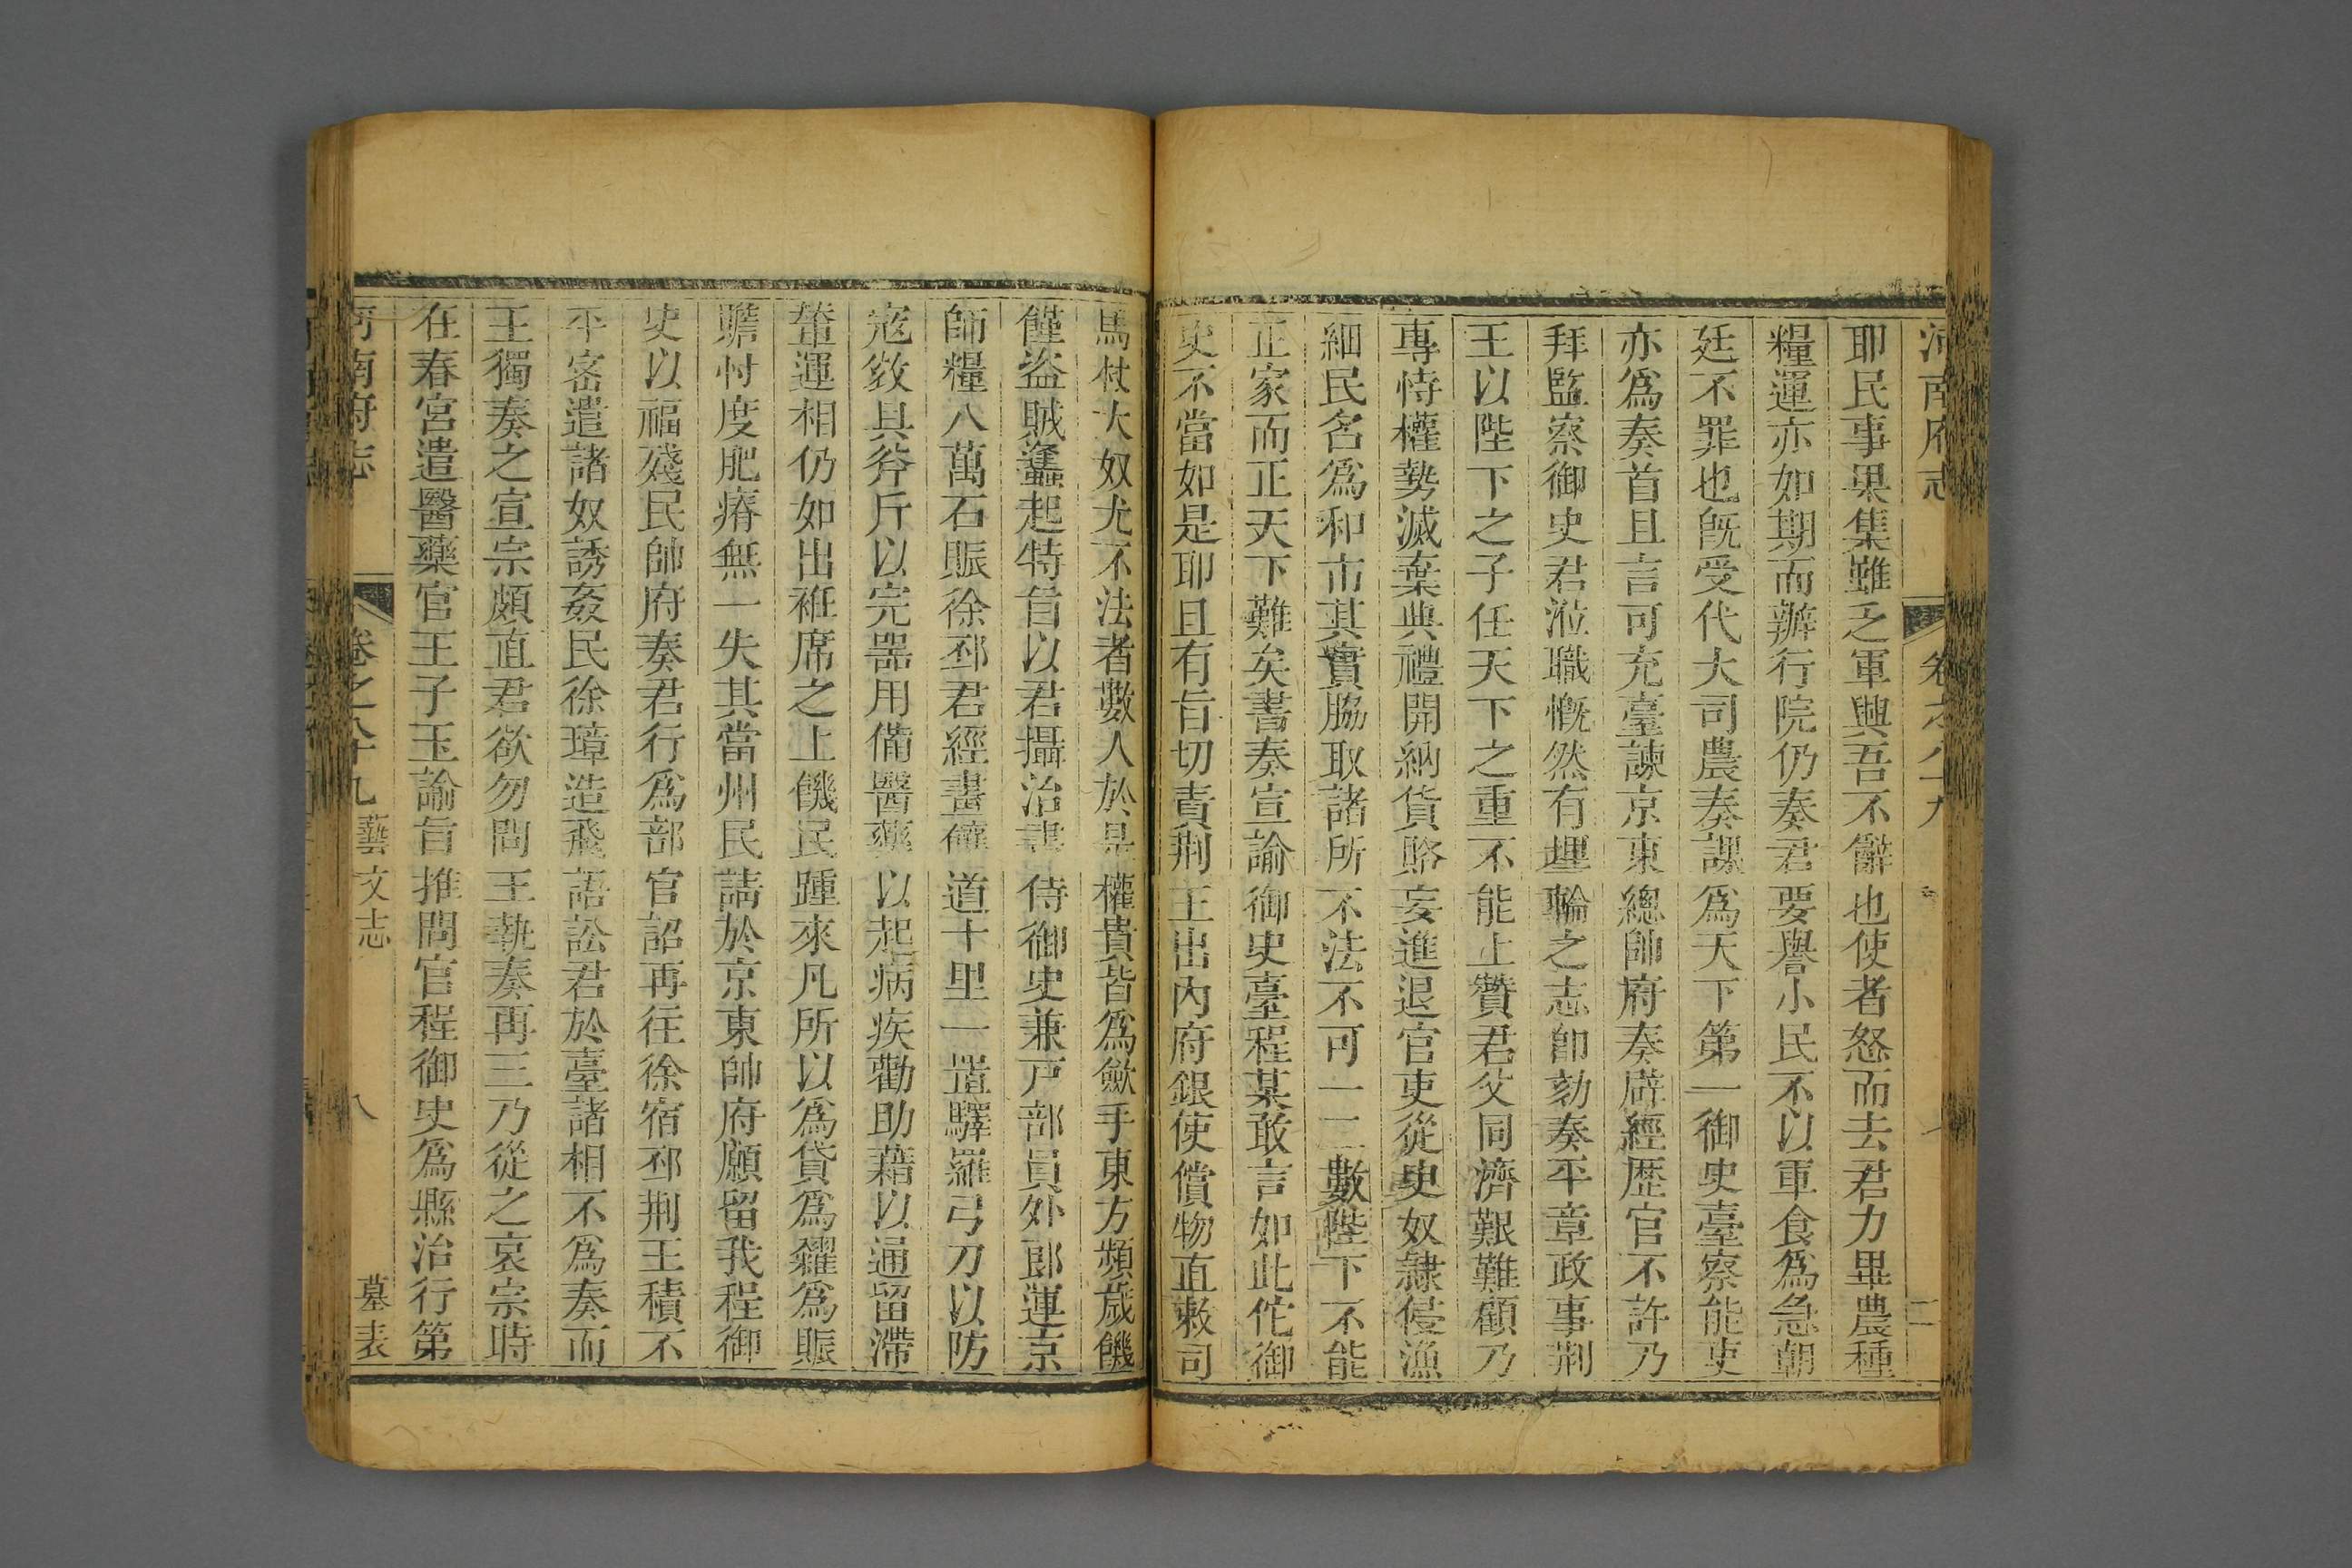 河南府志 卷之八十九
耶民事果集雖乏軍興吾不辭也使者怒而去君力畢農種
糧運亦如期而辦行院仍奏君要譽小民不以軍食爲急朝
廷不罪也旣受代大司農奏課爲天下第一御史臺察能吏
亦爲奏首且言可充臺諫京東總帥府奏辟經歷官不許乃
拜監察御史君涖職慨然有埋輪之志卽劾奏平章政事荆
王以陛下之子任天下之重不能上贊君父同濟艱難顧乃
專恃權勢滅棄典禮開納貨賂妄進退官吏從史奴隷侵漁
細民名爲和市其實脇取諸所不法不可一二數陛下不能
正家而正天下難矣書奏宣諭御史臺程某敢言如此佗御
史不當如是耶且有旨切責荆王出內府銀使償物直敕司
馬杖大奴尤不法者數人於是權貴皆爲斂手東方頻歲饑
饉盜賊蠭起特旨以君攝治書侍御史兼戸部員外郎運京
師糧八萬石賑徐邳君經畫饟道十里一置驛羅弓刀以防
寇敚具斧斤以完器用備醫藥以起病疾勸助藉以通留滯
輦運相仍如出袵席之上饑民踵來凡所以爲貸爲糴爲賑
贍忖度肥瘠無一失其當州民請於京東帥府願留我程御
史以福殘民帥府奏君行爲部官詔再往徐宿邳荆王積不
平密遣諸奴誘姦民徐璋造飛語訟君於臺諸相不爲奏而
王獨奏之宣宗頗直君欲勿問王執奏再三乃從之哀宗時
在春宮遣醫藥官王子玉諭旨推問官程御史爲縣治行第
河南府志 卷之八十九 藝文志 八 墓表